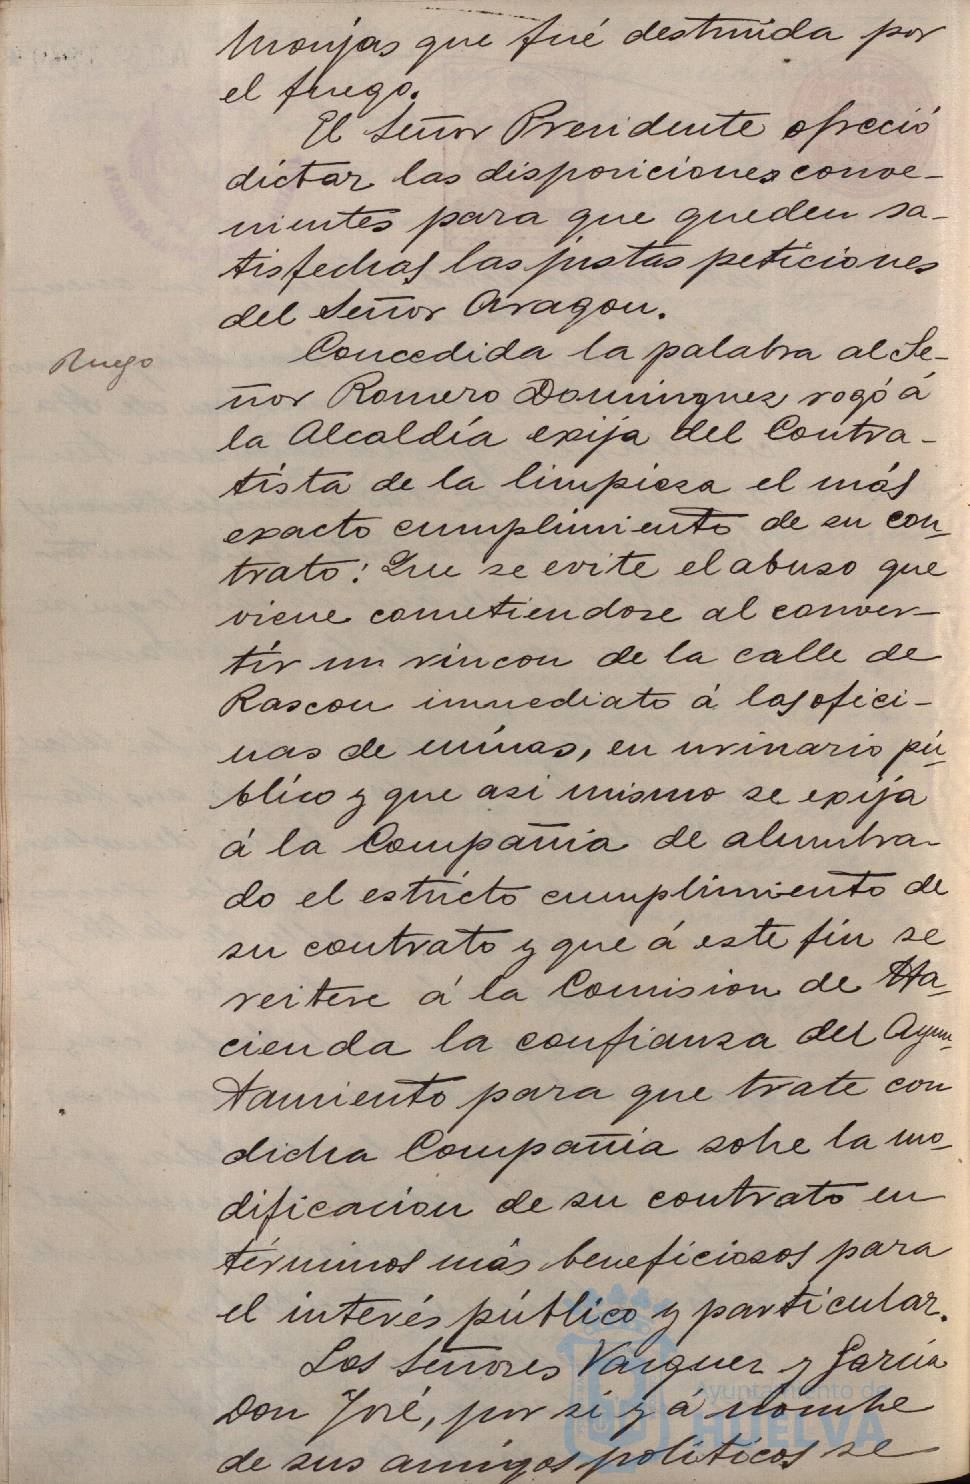 Monjas que fué destruida por
el fuego.
El Señor Presidente ofreció
dictar las disposiciones conve-
nientes para que queden sa-
tisfechas las justas peticiones
del Señor Aragon.
Ruego
Concedida la palabra al Se-
ñor Romero Dominguez rogó á
la Alcaldía exija del Contra-
tista de la limpieza el más
exacto cumplimiento de su con-
trato: Que se evite el abuso que
viene cometiendose al conver-
tir un rincon de la calle de
Rascon inmediato á las ofici-
nas de minas, en urinario pú-
blico y que asi mismo se exija
á la Compañia de alumbra-
do el estricto cumplimiento de
su contrato y que á este fin se
reitere á la Comision de Ha-
cienda la confianza del Ayun-
tamiento para que trate con
dicha Compañia sobre la mo-
dificacion de su contrato en
términos más beneficiosos para
el interés público y particular.
Los Señores Vazquez y García
Don José, por si y á nombre
de sus amigos políticos se
Ayuntamiento de
HUELVA